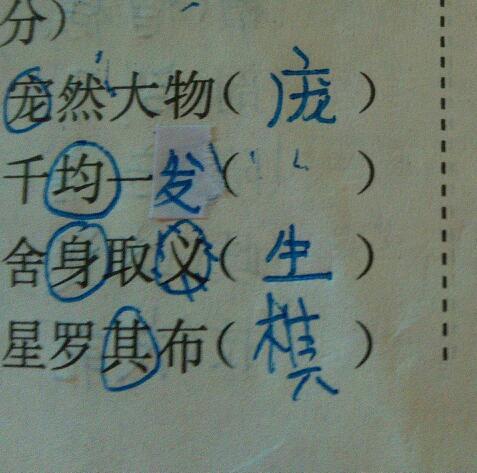 分)
宠然大物(庞)
千均一发(    )
舍身取义(生)
星罗其布(棋)